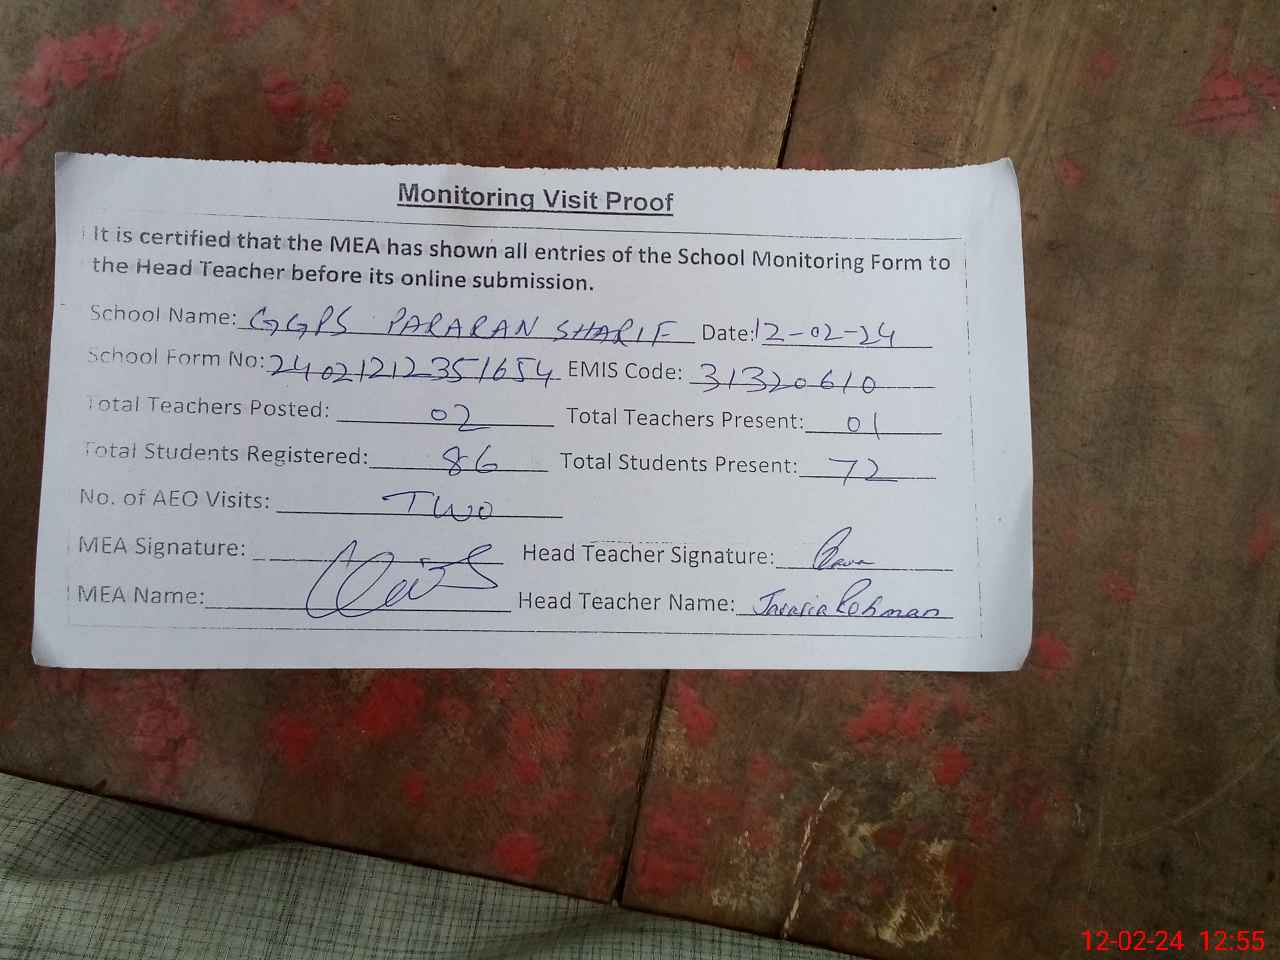 Monitoring Visit Proof
It is certified that the MEA has shown all entries of the School Monitoring Form to
the Head Teacher before its online submission.
School Name: GGPS PARARAN SHARIF Date: 12-02-24
School Form No: 240212123516S4 EMIS Code: 31320610
Total Teachers Posted: 02 Total Teachers Present: 01
Total Students Registered: 86 Total Students Present: 72
No. of AEO Visits: TWO
MEA Signature: Head Teacher Signature:
MEA Name: Head Teacher Name: Rehman
12-02-24 12:55